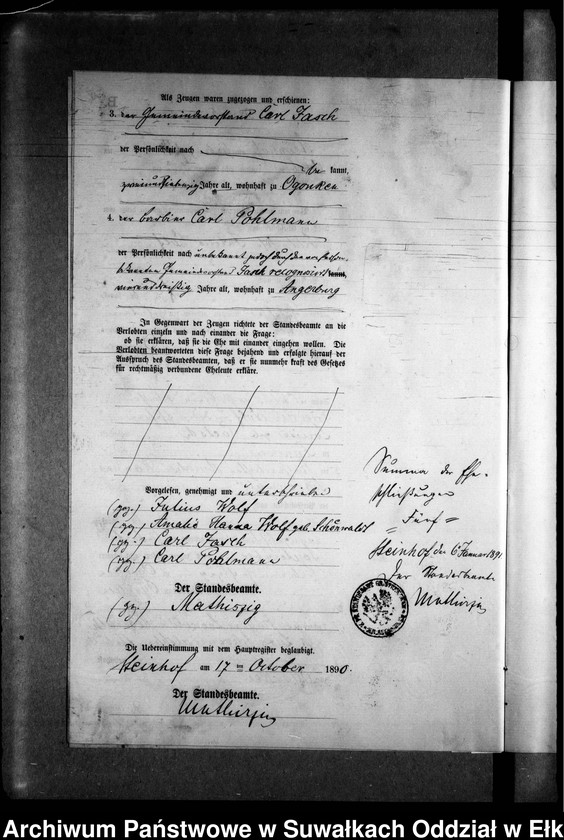 Als Zeugen waren zugezogen und erschienen:
3. der Gemeindevorstand Carl Jasch
der Persönlichkeit nach
be kannt,
zweiundsiebenzig Jahre alt, wohnhaft zu Ogonken
4. der Barbier Carl Pohlmann
der Persönlichkeit nach unbekannt jedoch durch den
bekannten Gemeindevorstand Jasch recognoscirt kannt,
vierunddreißig Jahre alt, wohnhaft zu Angerburg
In Gegenwart der Zeugen richtete der Standesbeamte an die
Verlobten einzeln und nach einander die Frage:
ob sie erklären, daß sie die Ehe mit einander eingehen wollen. Die
Verlobten beantworteten diese Frage bejahend und erfolgte hierauf der
Ausspruch des Standesbeamten, daß er sie nunmehr kraft des Gesetzes
für rechtmäßig verbundene Eheleute erkläre.
Vorgelesen, genehmigt und unterschrieben
(gez.) Julius Wolf
(gez.) Amalie Hanna Wolf geb. Schönwald
(gez.) Carl Jasch
(gez.) Carl Pohlmann
Der Standesbeamte.
(gez.) Mathiszig
Die Uebereinstimmung mit dem Hauptregister beglaubigt.
Steinhof am 17 ten October 1890.
Der Standesbeamte.
Mathiszig
Summa der Ehe-
schließungen
= Fünf =
Steinhof, den 6 Januar 1891
Der Standesbeamte
Mathiszig
Archiwum Państwowe w Suwałkach Oddział w Ełk